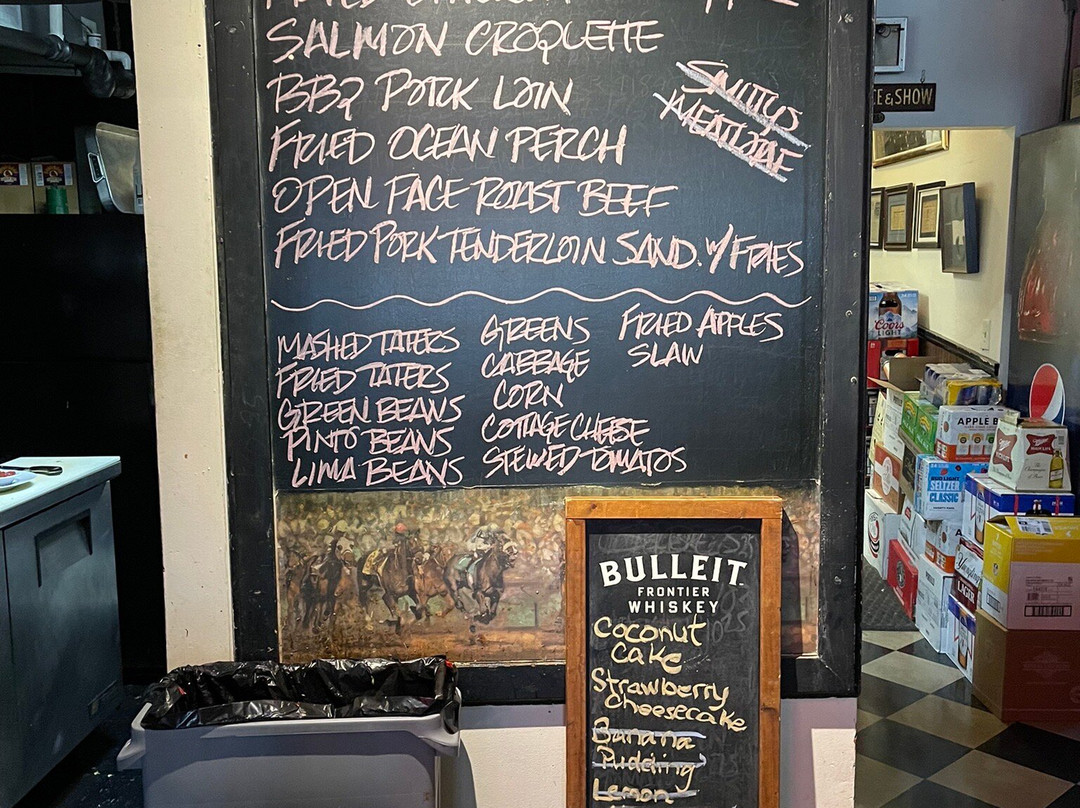 SALMON CROQUETTE
BBQ PORK LOIN
SMITTYS
MEATLOAF
FRIED OCEAN PERCH
OPEN FACE ROAST BEEF
FRIED PORK TENDERLOIN SAND. W/ FRIES
MASHED TATERS
FRIED TATERS
GREEN BEANS
PINTO BEANS
LIMA BEANS
GREENS
CABBAGE
CORN
COTTAGE CHEESE
STEWED TOMATOS
FRIED APPLES
SLAW
BULLEIT
FRONTIER
WHISKEY
Coconut
Cake
Strawberry
Cheesecake
Banana
Pudding
Lemon
E & SHOW
Coors
LIGHT
APPLE B
SELTZER
CLASSIC
LAGER